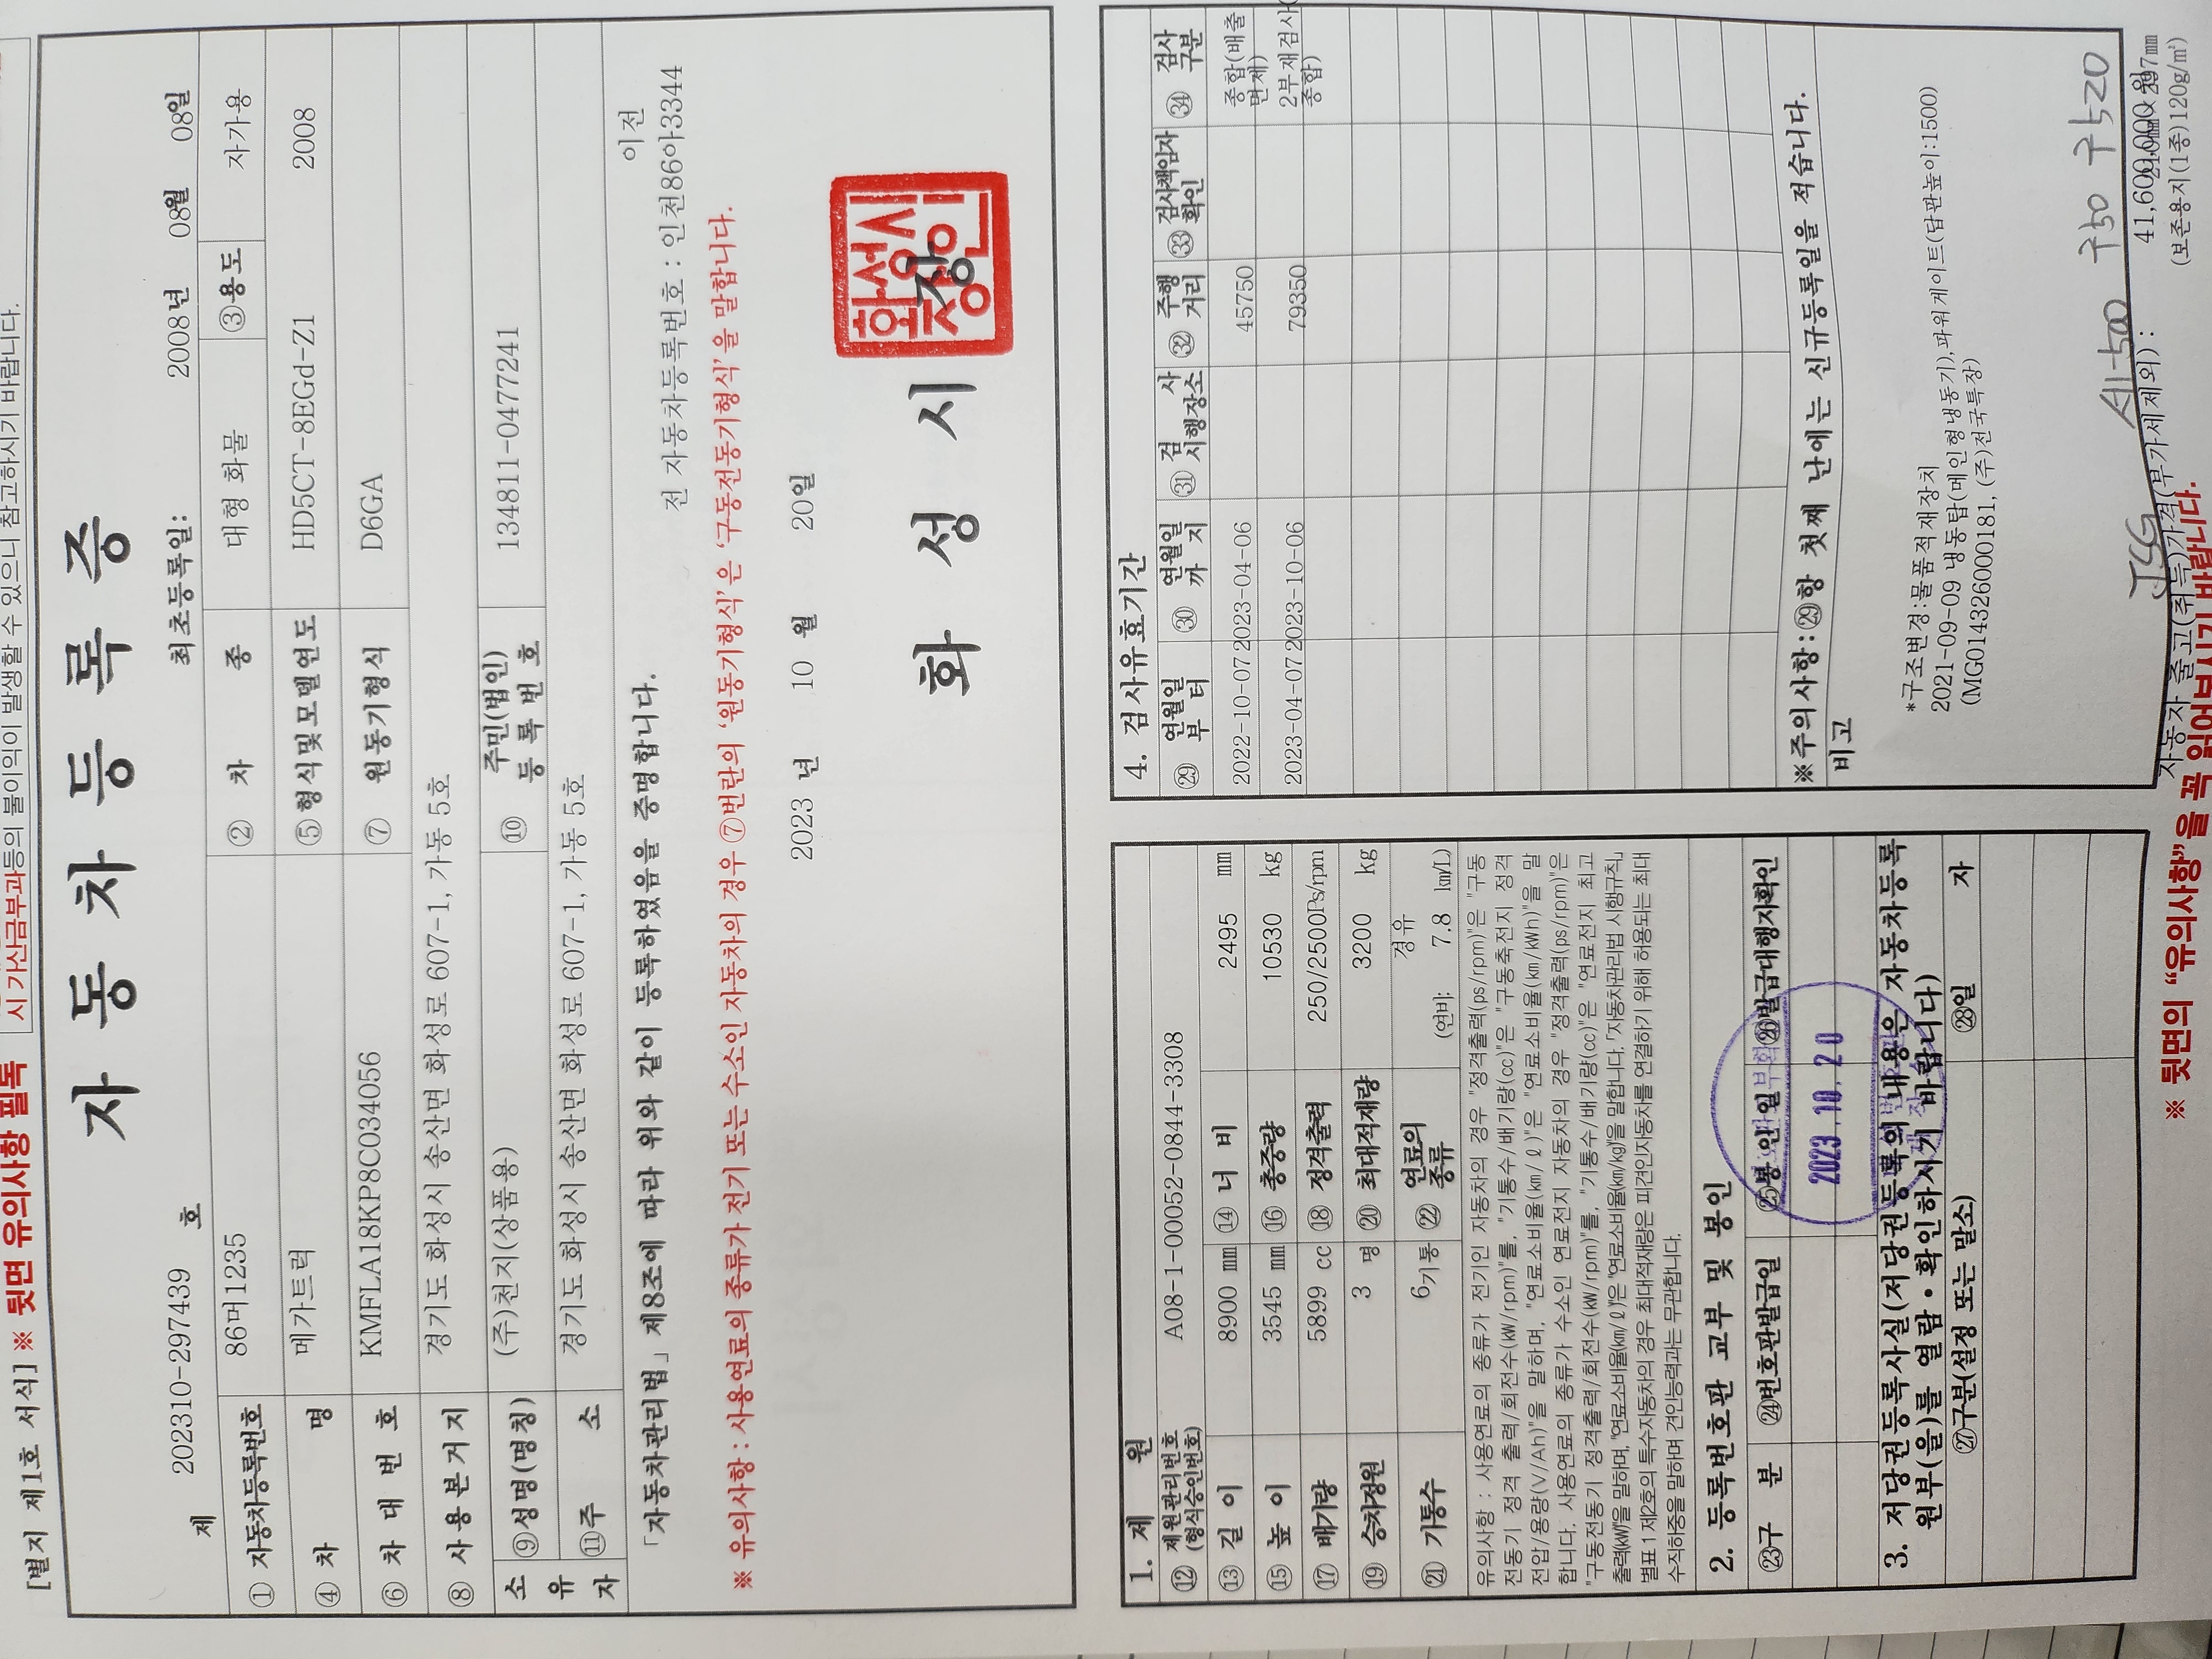 시 가산금부과등의 불이익이 발생할 수 있으니 참고하시기 바랍니다.
[별지 제1호 서식] ※ 뒷면 유의사항 필독
자 동 차 등 록 증
제 202310-297439 호
최초등록일: 2008년 08월 08일
① 자동차등록번호 86머1235 ② 차 종 대형 화물 ③용도 자가용
④ 차 명 메가트럭 ⑤형식및모델연도 HD5CT-8EGd-Z1 2008
⑥ 차 대 번 호 KMFLA18KP8C034056 ⑦ 원동기형식 D6GA
⑧ 사용본거지 경기도 화성시 송산면 화성로 607-1, 가동 5호
소 유 자
⑨성명(명칭) (주)천지(상품용) ⑩ 주민(법인)등 록 번 호 134811-0477241
⑪주 소 경기도 화성시 송산면 화성로 607-1, 가동 5호
「자동차관리법」 제8조에 따라 위와 같이 등록하였음을 증명합니다.
이전
전 자동차등록번호 : 인천86아3344
※ 유의사항 : 사용연료의 종류가 전기 또는 수소인 자동차의 경우 ⑦번란의 '원동기형식'은 '구동전동기형식'을 말합니다.
2023 년 10 월 20일
화 성 시 장
화성시장인
1. 제 원
⑫ 제원관리번호 (형식승인번호) A08-1-00052-0844-3308
⑬ 길 이 8900 ㎜ ⑭ 너 비 2495 ㎜
⑮ 높 이 3545 ㎜ ⑯ 총중량 10530 kg
⑰ 배기량 5899 cc ⑱ 정격출력 250/2500Ps/rpm
⑲ 승차정원 3 명 ⑳ 최대적재량 3200 kg
㉑ 기통수 6기통 ㉒ 연료의 종류 경유 (연비: 7.8 ㎞/L)
유의사항 : 사용연료의 종류가 전기인 자동차의 경우 "정격출력(ps/rpm)"은 "구동
전동기 정격 출력/회전수(㎾/rpm)"를, "기통수/배기량(cc)"은 "구동축전지 정격
전압/용량(V/Ah)"을 말하며, "연료소비율(㎞/ℓ)"은 "연료소비율(㎞/kWh)"을 말
합니다. 사용연료의 종류가 수소인 연료전지 자동차의 경우 "정격출력(ps/rpm)"은
"구동전동기 정격출력/회전수(㎾/rpm)"를, "기통수/배기량(cc)"은 "연료전지 최고
출력(㎾)"을 말하며, "연료소비율(㎞/ℓ)"은 "연료소비율(㎞/kg)"을 말합니다. 「자동차관리법 시행규칙」
별표 1 제2호의 특수자동차의 경우 최대적재량은 피견인자동차를 연결하기 위해 허용되는 최대
수직하중을 말하며 견인능력과는 무관합니다.
2. 등록번호판 교부 및 봉인
㉓구 분 ㉔번호판발급일 ㉕봉인일 ㉖발급대행자확인
2023. 10. 20
3. 저당권등록사실(저당권등록의 내용은 자동차등록
원부(을)를 열람·확인하시기 바랍니다)
㉗구분(설정 또는 말소) ㉘일 자
4. 검사유효기간
㉙ 연월일부 터 ㉚ 연월일까 지 ㉛ 검 사 시행장소 ㉜ 주행거리 ㉝ 검사책임자확인 ㉞ 검사구분
2022-10-07 2023-04-06 45750 종합(배출면제)
2023-04-07 2023-10-06 79350 2부재검사(종합)
※주의사항:㉙항 첫째 난에는 신규등록일을 적습니다.
비고
*구조변경:물품적재장치
2021-09-09 냉동탑(메인형냉동기),파워게이트(답판높이:1500)
(MG014326000181, (주)전국특장)
자동차 출고(취득)가격(부가세제외) : 41,600,000 원
297㎜
(보존용지(1종)120g/㎡)
※ 뒷면의 "유의사항"을 꼭 읽어보시기 바랍니다.